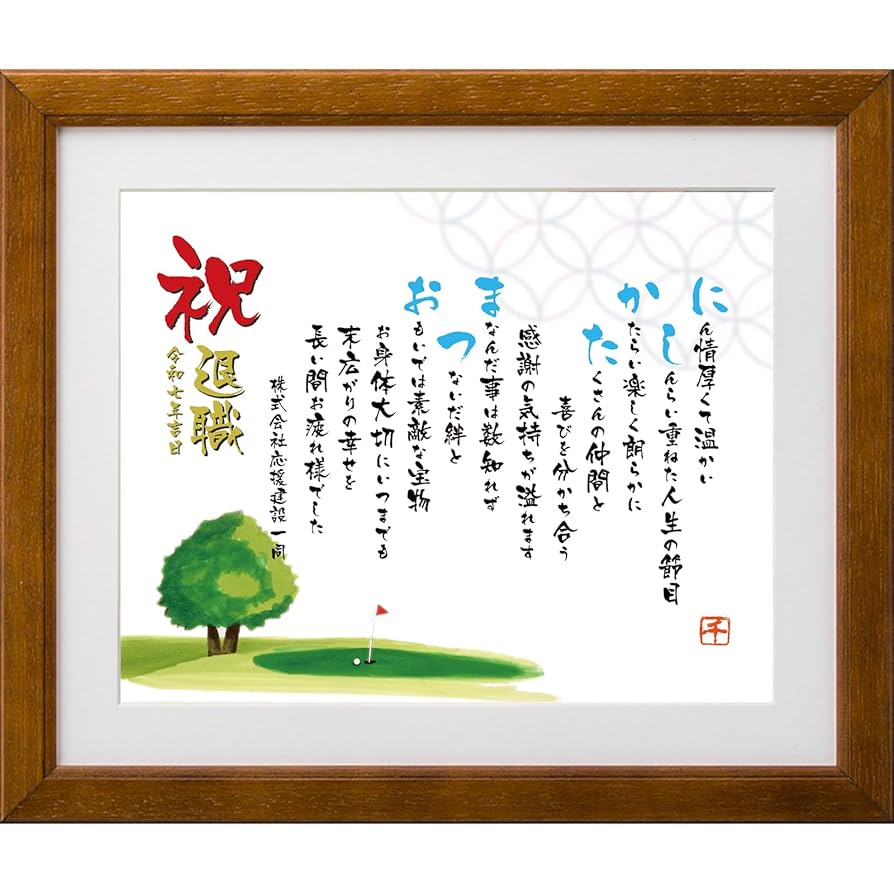 にん情厚くて温かい
しんらい重ねた人生の節目
かたらい楽しく朗らかに
たくさんの仲間と
喜びを分かち合う
感謝の気持ちが溢れます
まなんだ事は数知れず
つないだ絆と
おもいでは素敵な宝物
お身体大切にいつまでも
末広がりの幸せを
長い間お疲れ様でした
株式会社応援建設一同
祝
退職
令和七年吉日
千